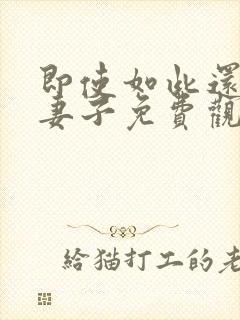 即使如此還
妻子免費觀
給猫打工的老